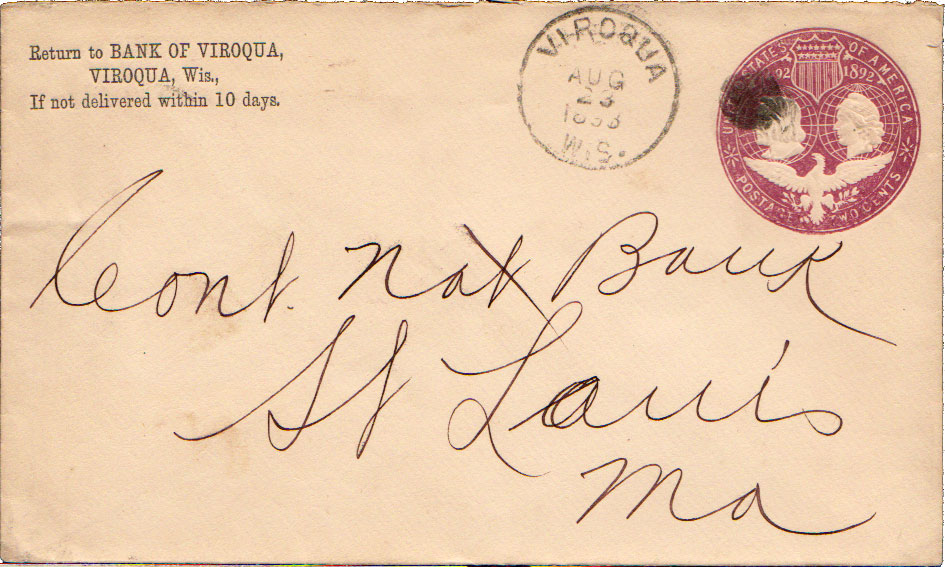 Return to BANK OF VIROQUA,
VIROQUA, Wis.,
If not delivered within 10 days.
VIROQUA
AUG
23
1893
WIS.
UNITED STATES OF AMERICA
1492 1892
POSTAGE TWO CENTS
Cont. Nat Bank
St Louis
Mo